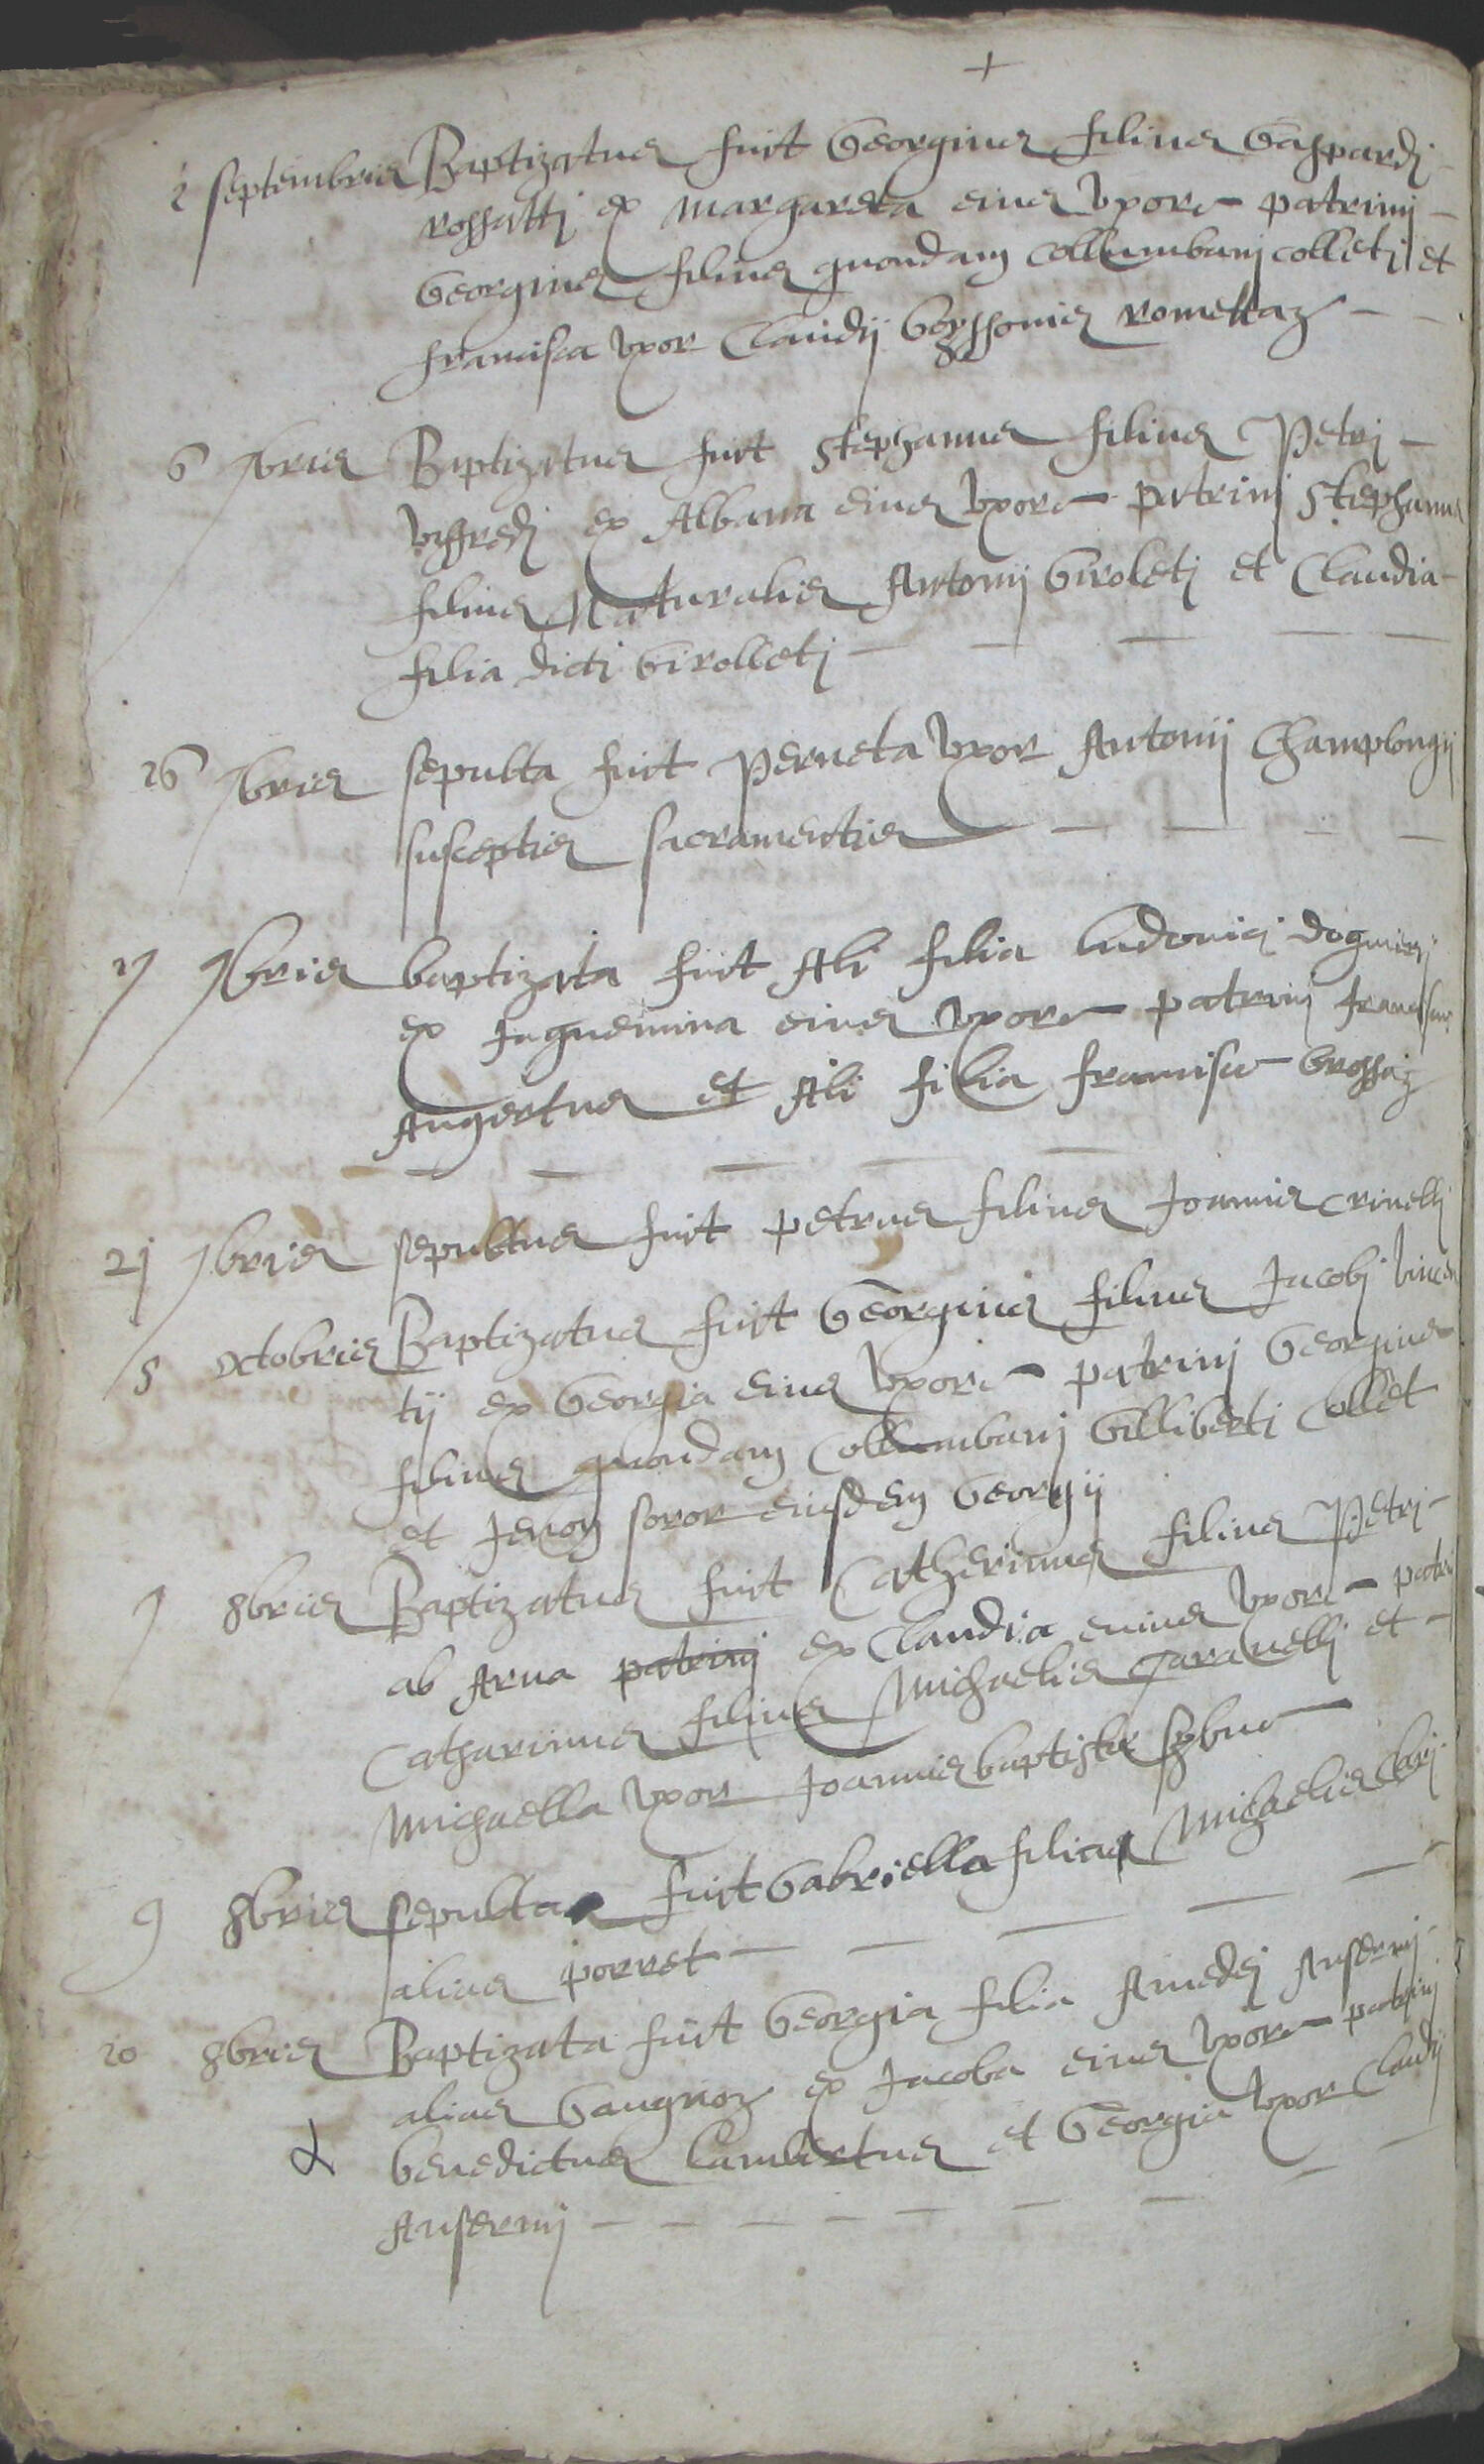 +
2 septembris Baptizatus fuit Georgius filius Gaspardj
rossattj ex margareta eius uxore patrinj
Georgius filius quondam Collumbanj colletj et
francisca uxor Claudij Gerssonis romettaz
6 7bris Baptizatus fuit Stephanus filius Petrj
Viffredj ex Albana eius uxore patrinj Stephanus
filius Naturalis Antonij Giroletj et Claudia
filia dictj Girolletj
16 7bris sepulta fuit Perneta uxor Antonij Champlongij
susceptis sacramentis
17 7bris baptizata fuit Ali filia ludovicj
ex Jaquemina eius uxore patrinj franciscus
Augertus et Ali filia francisci brossaz
21 7bris sepultus fuit petrus filius Joannis crivellj
5 octobris Baptizatus fuit Georgius filius Jacobj vincen
tij ex Georgia eius uxore patrinj Georgius
filius quondam Collumbanj Gillibertj Collet
et Jenon soror eiusdem Georgij
7 8bris Baptizatus fuit Catherinus filius Petrj
ab Arva patrinj ex Claudia eius uxore patri
Catharinus filius Michaelis Garavellj et
Michaella uxor Joannis baptiste
9 8bris sepulta fuit Gabriella filia Michaelis Clarj
alias porret
20 8bris Baptizata fuit Georgia filia Amedej Ansermj
alias Gaugnoz ex Jacoba eius uxore patrinj
benedictus lambertus et Georgia uxor Claudij
Ansermj